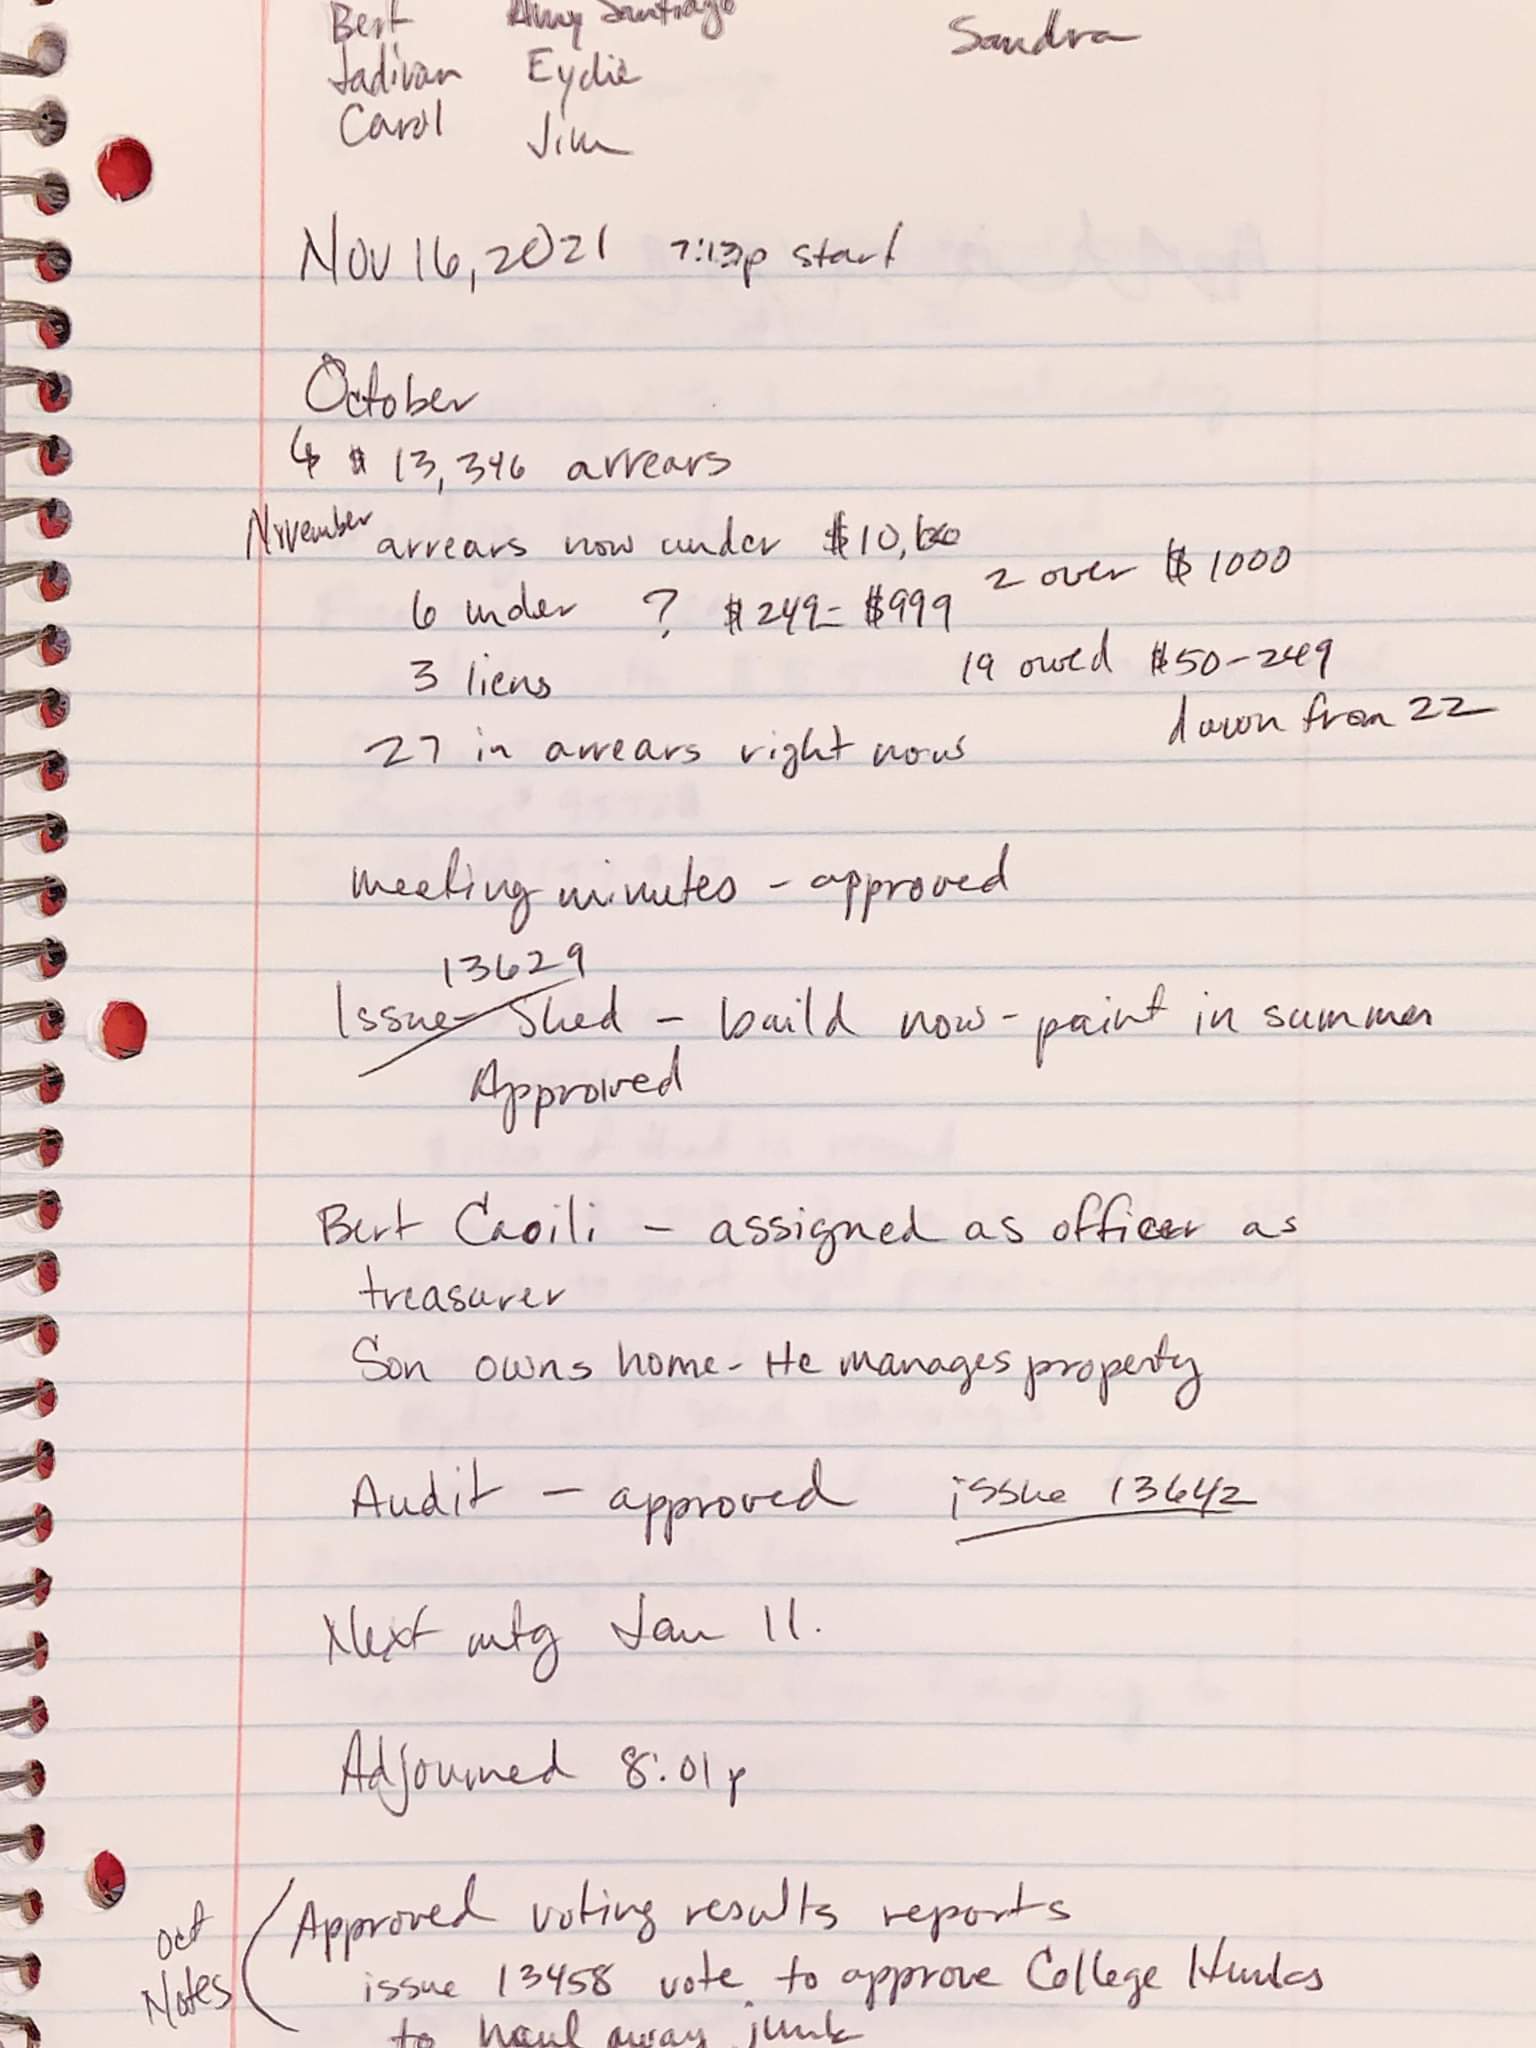 Bert Amy Santiago Sandra
Jadivan Eydie
Carol Jim
Nov 16, 2021 7:13p start
October
↳ $ 13,346 arrears
November arrears now under $10,
6 under ? $249-$999 2 over $1000
3 liens 19 owed $50-249
27 in arrears right now down from 22
meeting minutes - approved
13629
Issue - Shed - build now - paint in summer
Approved
Bert Caoili - assigned as officer as
treasurer
Son owns home - He manages property
Audit - approved issue 13642
Next mtg Jan 11.
Adjourned 8:01p
Oct Notes ( Approved voting results reports
issue 13458 vote to approve College Hunks
to haul away junk